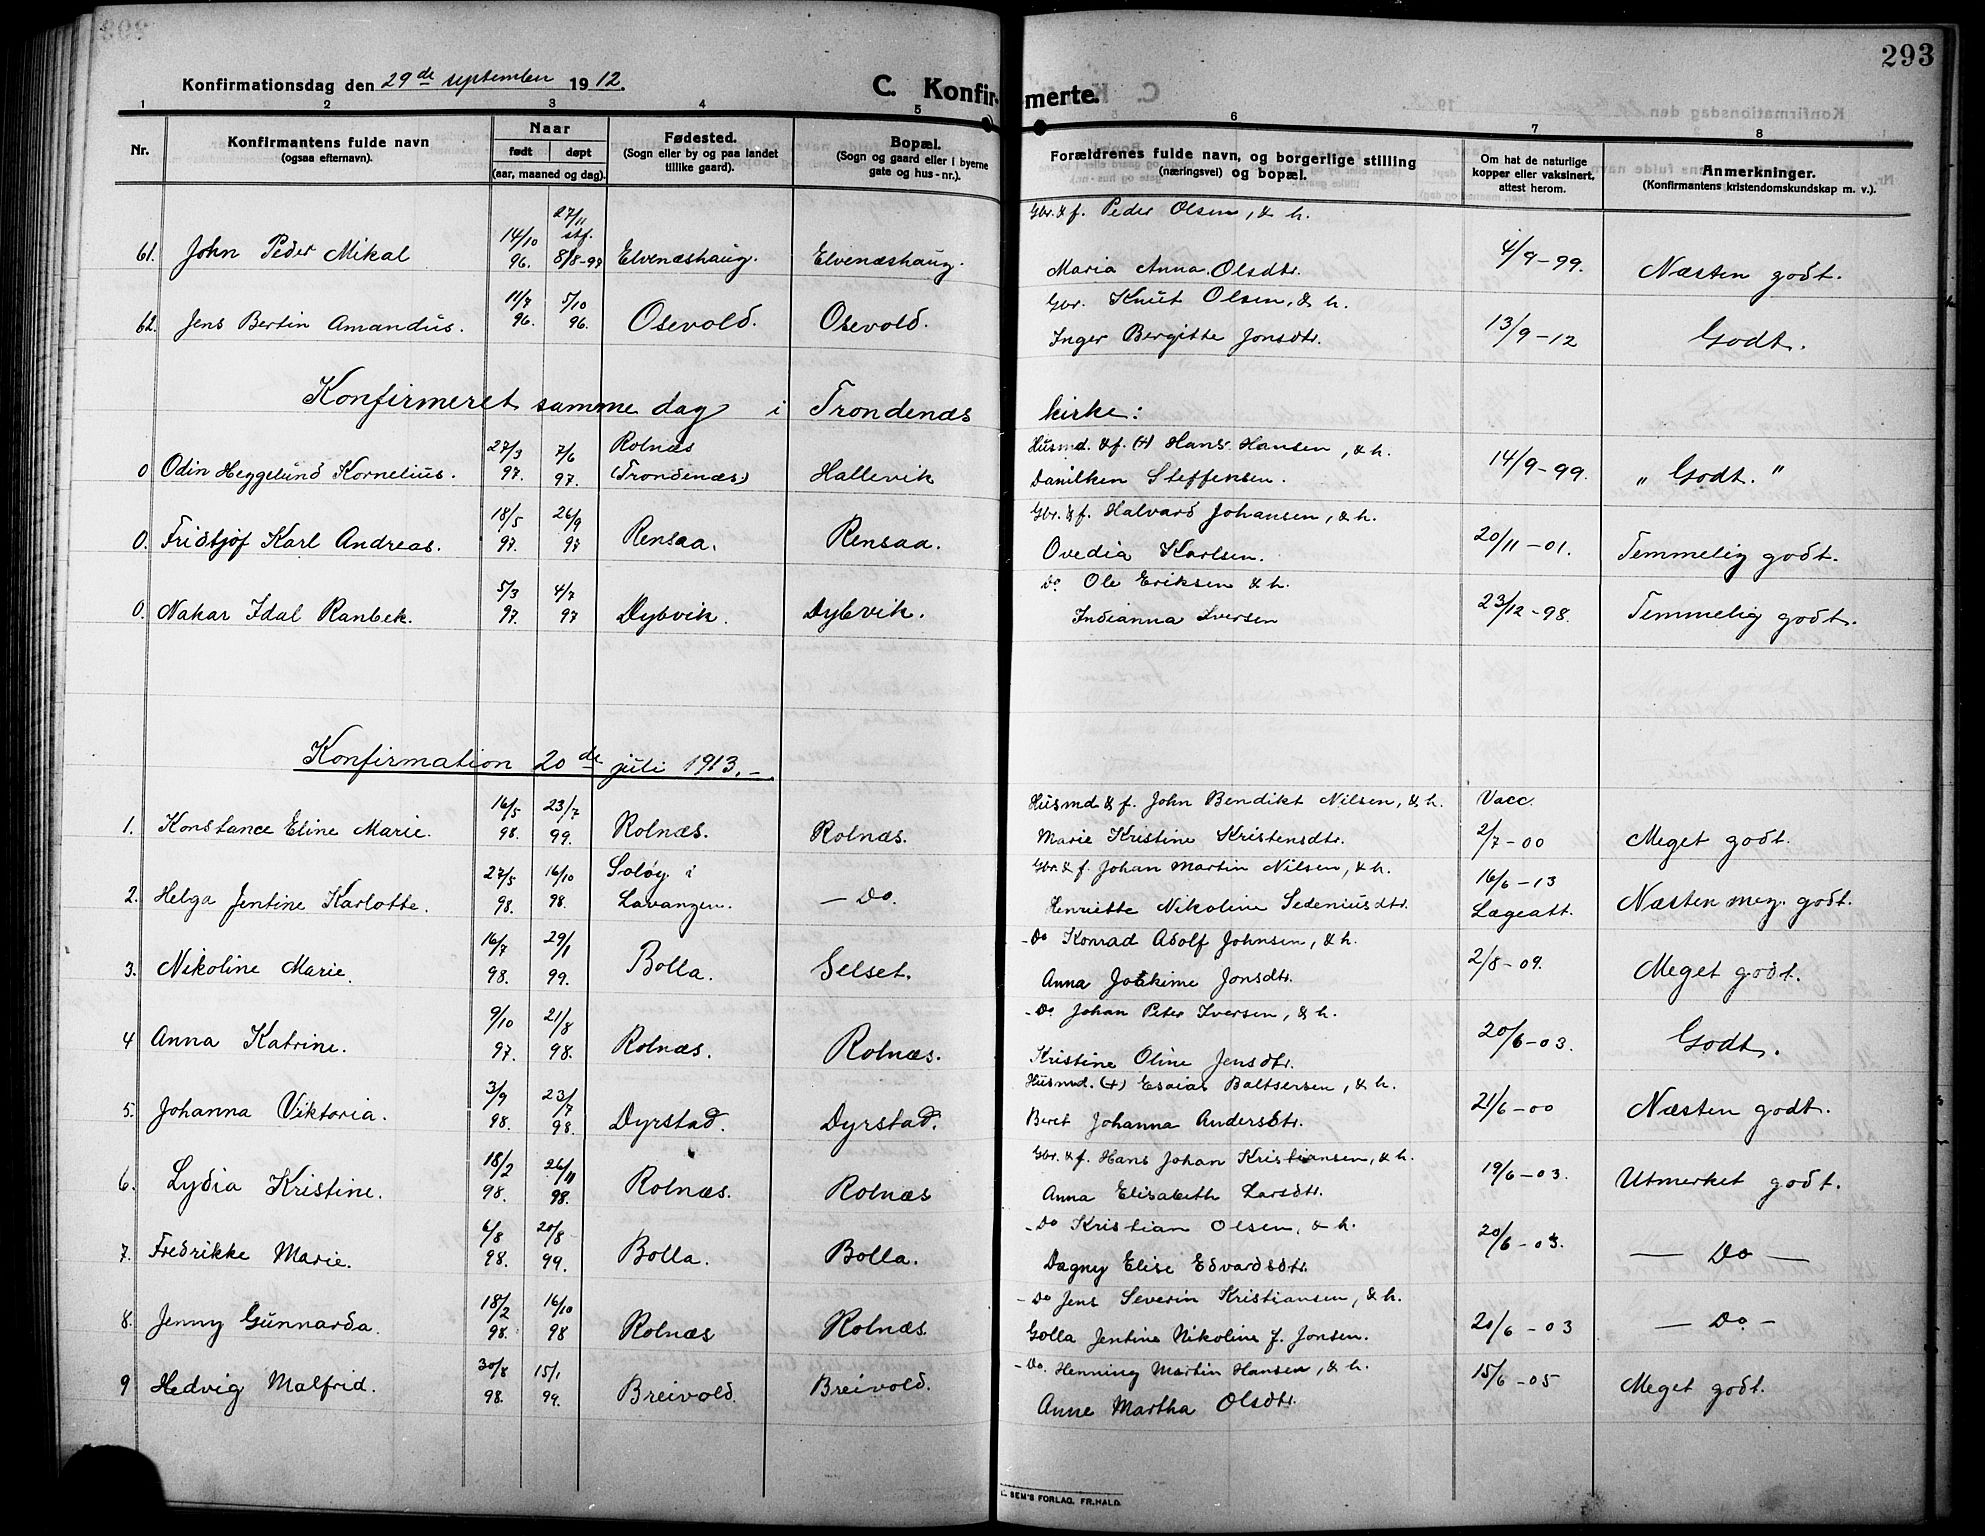 293
Konfirmationsdag den 29de september 1912.
C. Konfirmerte.
1 2 3 4 5 6 7 8
Nr.
Konfirmantens fulde navn
(ogsaa efternavn).
Naar
født døpt
(aar, maaned og dag).
Fødested.
(Sogn eller by og paa landet
tillike gaard).
Bopæl.
(Sogn og gaard eller i byerne
gate og hus-nr.).
Forældrenes fulde navn, og borgerlige stilling
(næringsvei) og bopæl.
Om hat de naturlige
kopper eller vaksinert,
attest herom.
Anmerkninger.
(Konfirmantens kristendomskundskap m. v.).
27/11 Gbr. & f. Peder Olsen, & h.
14/10 stf.
61. John Peder Mikal 96. 8/8-97 Elvenæshaug. Elvenæshaug. Maria Anna Olsdtr. 4/9-99. Næsten godt.
11/7 5/10 Gbr. Knut Olsen, & h.
62. Jens Bertin Amandus. 96. 96. Osevold. Osevold. Inger Bergitte Jonsdtr. 13/9-12 Godt.
Konfirmeret samme dag i Trondenæs kirke:
27/3 7/6 Rolnæs Husmd. & f. (+) Hans Hansen, & h.
0 Odin Heggelund Kornelius. 97. 97. (Trondenæs) Hallevik Danilken Steffensen. 14/9-99. „ Godt. "
18/5 26/9 Gbr. & f. Halvard Johansen, & h.
0. Fridtjof Karl Andreas. 97. 97 Rensaa. Rensaa. Ovedia Karlsen. 20/11-01. Temmelig godt.
5/3 4/7 Do. Ole Eriksen & h.
0. Nakar Idal Ranbek. 97. 97 Dybvik. Dybvik. Indianna Iversen 23/12-98. Temmelig godt.
Konfirmation 20de juli 1913.-
16/5 23/7 Husmd & f. John Bendikt Nilsen, & h. Vacc.
1. Konstance Eline Marie. 98. 99. Rolnæs. Rolnæs. Marie Kristine Kristensdtr. 2/7-00 Meget godt.
27/5 16/10 Soløy i Gbr. & f. Johan Martin Nilsen, & h. 16/6-13
2. Helga Jentine Karlotte. 98. 98. Lavangen. — Do. Henriette Nikoline Sedeniusdtr. Lægeatt. Næsten meg. godt.
16/7 29/1 - Do Konrad Adolf Johnsen, & h.
3. Nikoline Marie. 98. 99. Bolla. Selset. Anna Joakime Jonsdtr. 2/8-09. Meget godt.
9/10 21/8 - Do. Johan Peter Iversen, & h.
4 Anna Katrine. 97. 98. Rolnæs. Rolnæs. Kristine Oline Jensdtr. 20/6-03. Godt.
3/9 23/7 Husmd. (+) Esaias Baltsersen, & h.
5. Johanna Viktoria. 98. 98. Dyrstad. Dyrstad. Beret Johanna Andersdtr. 21/6-00 Næsten godt.
18/2 26/11 Gbr. & f. Hans Johan Kristiansen, & h.
6. Lydia Kristine. 98. 98. Rolnæs. Rolnæs Anna Elisabeth Larsdtr. 19/6-03. Utmerket godt.
6/8 20/8 - Do Kristian Olsen, & h.
7. Fredrikke Marie. 98. 99. Bolla. Bolla. Dagny Elise Edvardsdtr. 20/6-03. — Do —
18/2 16/10 - Do Jens Severin Kristiansen, & h.
8. Jenny Gunnarda. 98. 98 Rolnæs Rolnæs. Golla Jentine Nikoline f. Jonsen. 20/6-03 — Do. -
30/8 15/1 - Do. Henning Martin Hansen, & h.
9 Hedvig Malfrid. 98. 99. Breivold. Breivold. Anne Martha Olsdtr. 15/6-05 Meget godt.
SEM'S FORLAG, FR.HALD.